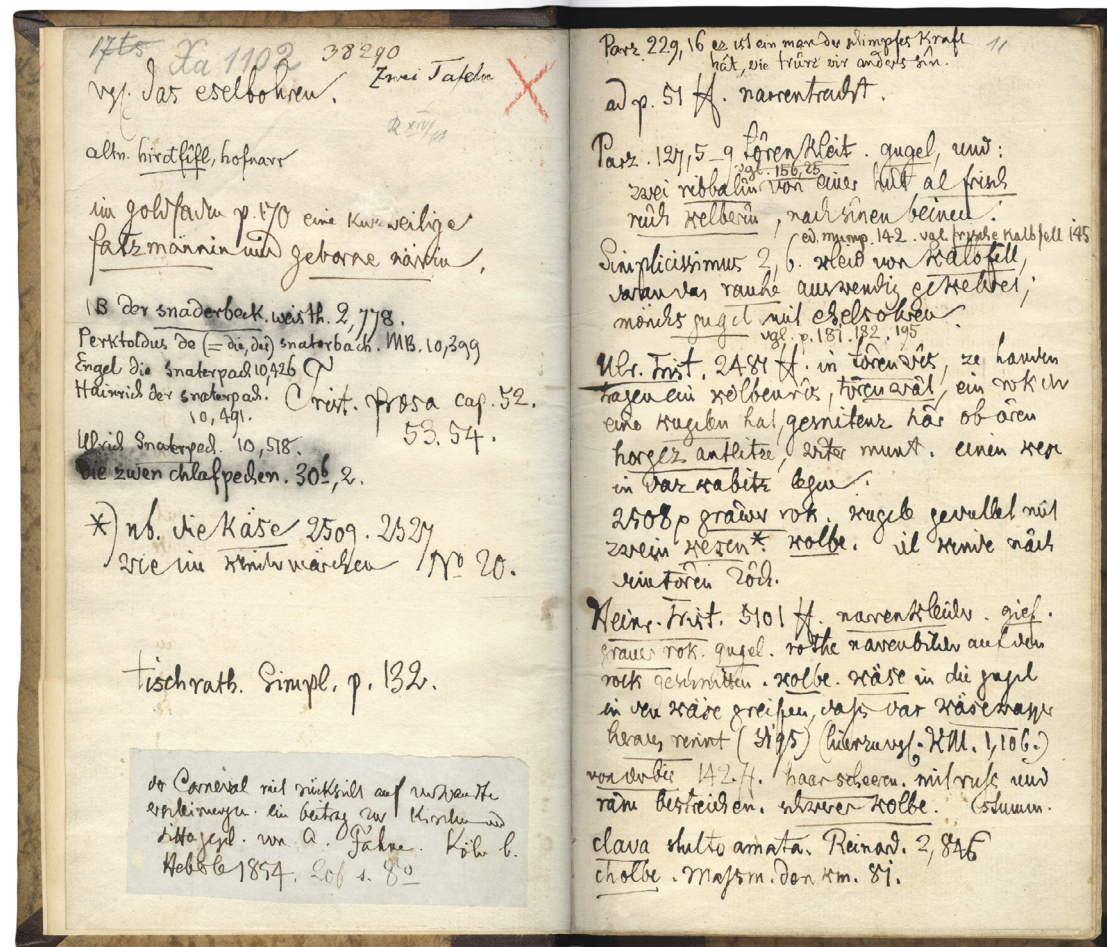 17t5
Xa 1102
38290
Zwei Tafeln
vgl. das eselbohren.
altn. hirdfífl, hofnarr
im goldfaden p. 170 eine kurzweilige
fatzmännin und geborne närrin.
der snaderbeck. weisth. 2,778.
Perktoldus de (= die, der) snaterbach. MB. 10,399
Engel die Snaterpach 10,426
Hainrich der snaterpach.
10,491.
Crist. prosa cap. 52.
53. 54.
Ulrich Snaterpach. 10,518.
die zwen chlafpechen. 30b,2.
*) nb. die Käse 2509. 2527
wie im kindermärchen No 20.
tischrath. Simpl. p. 132.
der Carneval mit rücksicht auf verwandte
erscheinungen. ein beitrag zur Kirchen- und
Sittengesch. von A. Fahne. Köln b.
Heberle 1854. s. 8o
11
Parz. 229, 16 ez ist ein man der schimpfes kraft
hât, swie trûrc wir anders sîn.
ad p. 51 ff. narrentracht.
Parz. 127, 5_9 tôren kleit. gugel, und:
vgl. 156, 25
zwei ribbalîn von einer hût al frisch
rûch kelberîn, nach sînen beinen.
ed. mump. 142. vgl. frische Kalbfell 145
Simplicissimus 2, 6. kleid von kalbfell,
daran das rauhe auswendig gekehret;
mönchs gugel mit eselsohren.
vgl. p. 181. 182. 195
Ulr. Trist. 2487 ff. in tôren wîs, ze handen
tragen ein kolben rîs, tôren wât, ein rok der
eine kugelen hat, gesnitenz hâr ob ôren
horgez antlitze, witer munt. einen kese
in daz kabitz legen.
2508 grâwer rok. kugele gevullet mit
zwein kesen*. kolbe.
Heinr. Trist. 5101 ff. narrenkleider.
grauer rok. gugel. rothe narrenbilder auf den
rock geschnitten. kolbe. käse in die gugel
in den käse greifen, dass das käsewasser
heraus rinnt (5195) (hierzu vgl. KM. 1,106.)
142.7. haar scheeren. mit russ und
ram bestreichen. schwerer kolbe. stumm.
clava stulto amata. Reinard. 2,846
cholbe. Massm. den km. 81.